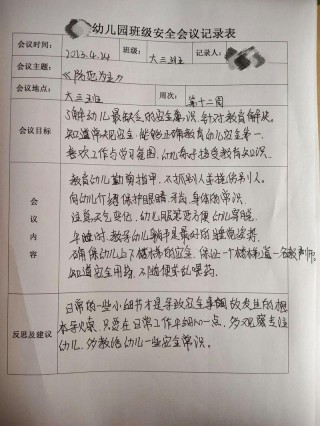 幼儿园班级安全会议记录表
会议时间: 2013.4.24 班级: 大三班 记录人:
会议主题:
《防范为主》
会议地点: 大三班 周次: 第十二周
会议目标
了解幼儿最缺乏的安全常识,针对教育解决。
知道常规安全,能够正确教育幼儿安全第一。
喜欢工作与学习氛围,幼儿易于接受教育知识。
会议内容
教育幼儿勤剪指甲,不抓别人,
向幼儿介绍保护眼睛、牙齿、身体的常识。
注意天气变化,幼儿服装
午睡时,教导幼儿躺平是最好的睡觉姿势。
确保幼儿上下楼梯的安全,保证一个楼梯道一名教师。
知道安全用药,不随便去喂药。
反思及建议
日常的一些小细节才是导致安全事故的发生的根
本导火索,只要在日常工作中细心一点,多观察关注
幼儿,多教给幼儿一些安全常识。